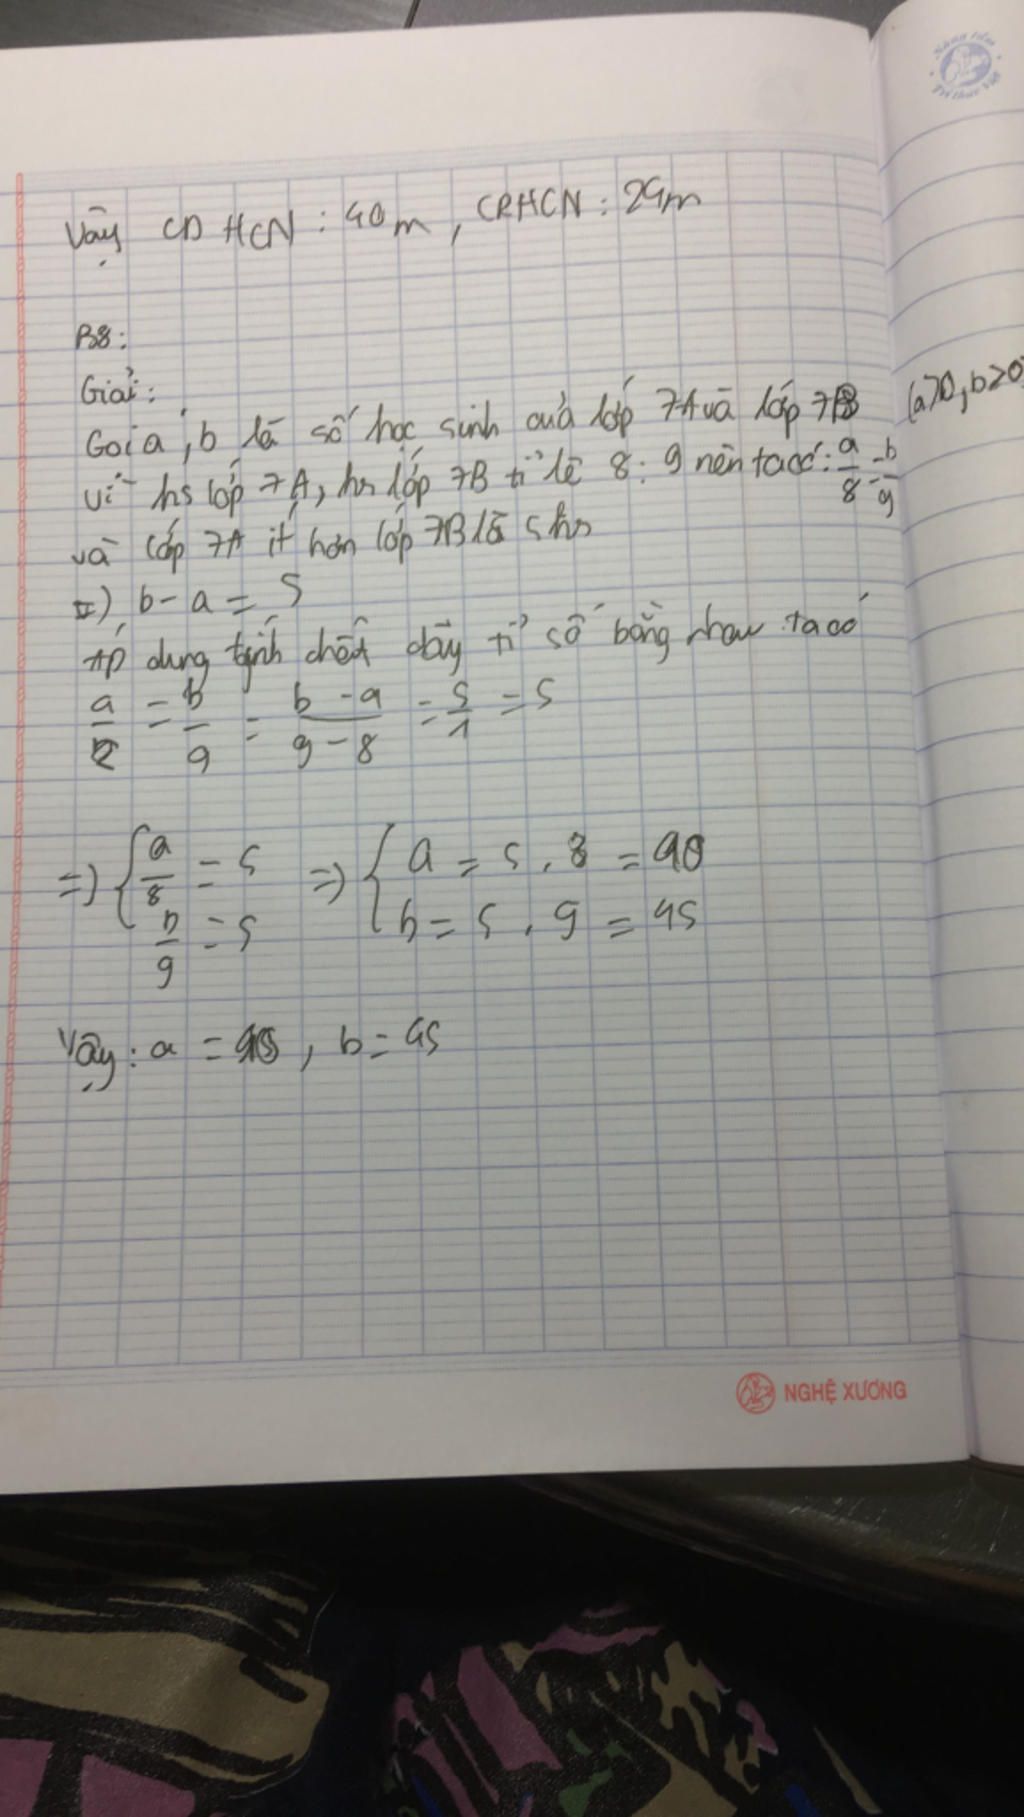 Sáng tầm
Trí thức Việt
Vậy CD HCN : 40m, CRHCN : 24m
B8:
Giải:
Gọi a, b là số học sinh của lớp 7A và lớp 7B (a>0, b>0)
Vì hs lớp 7A, hs lớp 7B tỉ lệ 8 : 9 nên ta có: a/8 = b/9
và lớp 7A ít hơn lớp 7B là 5 hs
=) b - a = 5
Áp dụng tính chất dãy tỉ số bằng nhau ta có
a/8 = b/9 = b - a/9 - 8 = 5/1 = 5
=) { a/8 = 5 =) { a = 5 . 8 = 40
b/9 = 5 b = 5 . 9 = 45
Vậy: a = 40, b = 45
NGHỆ XƯƠNG